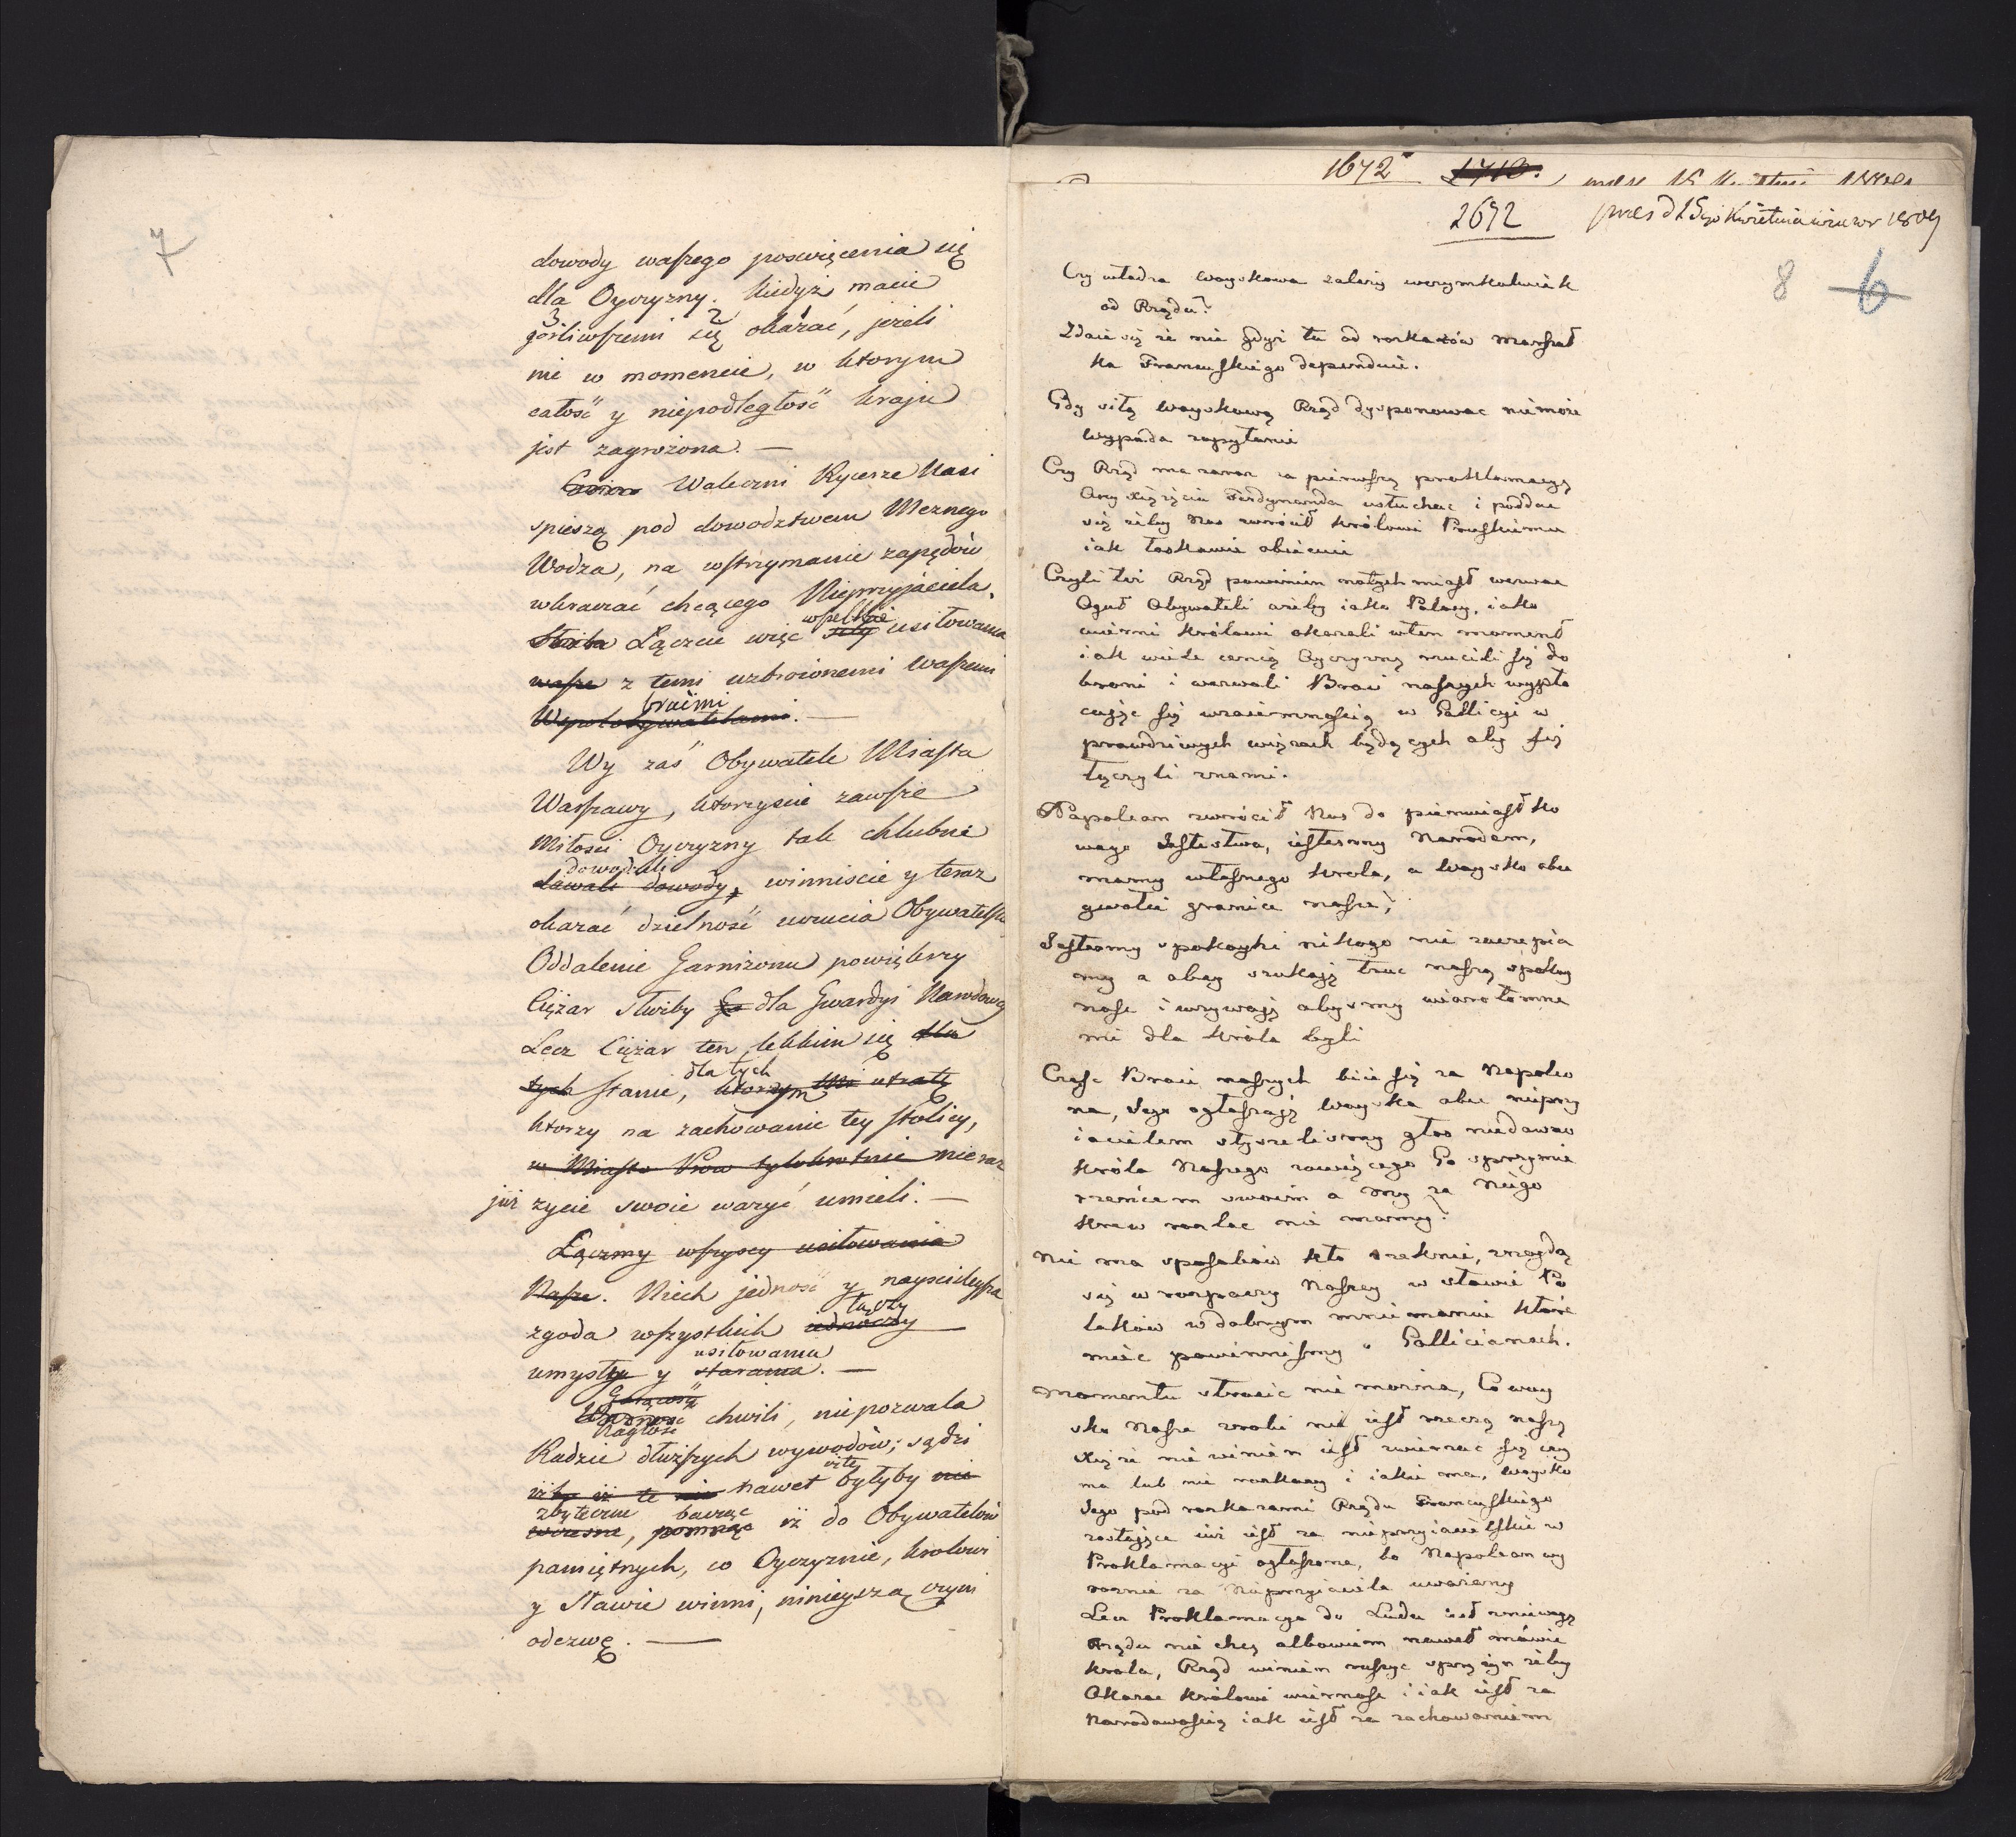 7
dowody waszego poswięcenia się
dla Oyczyzny. Kiedyż macie
3 2 1
gorliwszemi się okazać, jeżeli
nie w momencie, w ktorym
całość y niepodległość kraju
jest zagrożona. —
Waleczni Rycerze Nasi
spieszą pod dowodztwem Mężnego
Wodza, na wstrzymanie zapędów
wkraczać chcącego Nieprzyjaciela.
wszelkie
Łączcie więc siły usiłowania
wasze z temi uzbroionemi waszemi
braćmi
Wspołobywatelami. —
Wy zaś Obywatele Miasta
Warszawy, ktorzyscie zawsze
Miłości Oyczyzny tak chlubnie
dowodzili
dawali dowody, winniscie y teraz
okazać dzielność uczucia Obywatelsk
Oddalenie Garnizonu powiększy
Ciężar służby dla Gwardyi Narodowey
Lecz Ciężar ten lekkim się dla
dla tych
tych stanie, ktorzym utratę
ktorzy na zachowanie tey stolicy,
w Miasto tylokrotnie nieraz
już zycie swoie ważyć umieli. —
Łączmy wszyscy usiłowania
Nasze. Niech jedność y nayscisleysza
łączy
zgoda wszystkich
usiłowania
umysły y starania. —
Gorącość
Ważność chwili, niepozwala
Nagłość
Radzie dłuższych wywodów; sądzi
iż te nie nawet byłyby nie
zbyteczne bacząc
wczesne, pomnąc iż do Obywatelów
pamiętnych, co Oyczyznie, krolowi
y Sławie winni, ninieyszą czyni
odezwę. —
1672 1710.
2672 pres d 15go Kwietnia 1809
8 6
Czy władza Woyskowa zależy w czymkolwiek
od Rządu?
Zdaie się że nie gdyż ta od rozkazów Marszał
ka Francuskiego dependuie.
Gdy siłą Woyskową Rząd dysponować niemoże
wypada zapytanie
Czy Rząd ma zaraz za pierwszą proklamacyą
Arcy Xiężęcia Ferdynanda usłuchać i poddać
się żeby Nas zwrócił Królowi Pruskiemu
iak łaskawie obiecuie
Czyli też Rząd powinien natychmiast wezwać
Oguł Obywateli ażeby iako Polacy, iako
wierni Królowi okazali w ten moment
iak wiele cenią Oyczyznę rzucili się do
broni i wezwali Braci naszych wypła
cając się wzaiemnością w Gallicyi w
prawdziwych więzach będących aby się
łączyli z nami.
Napoleon zwrócił Nas do pierwiastko
wego Jestestwa, iestesmy Narodem,
mamy własnego Krola, a Woysko obce
gwałci granice nasze,
Jestesmy spokoyni nikogo nie zaczepia
my a obcy szukają truć naszą spokoy
ność i wzywają abysmy wiarołomne
mi dla Króla byli
Część Braci naszych biie się za Napoleo
na, Jego ogłaszają Woyska obce nieprzy
iacielem słyszelismy głos niedawno
Króla Naszego zowiącego Go sprzymie
rzeńcem swoim a my za Niego
Krew rozlać nie mamy?
Nie ma sposobów kto rzeknie, znaydą
się w rozpaczy Naszey w sławie Po
laków w dobrym mniemaniu które
mieć powinnismy o Gallicianach.
Momentu stracić nie można, Co woy
sko Nasze zrobi nie iest rzeczą naszą
Xiąże nie winien iest zwierzać się czy
ma lub nie rozkazy i iakie ma, Woysko
Jego pod rozkazami Rządu Francuskiego
zostające iuż iest za nieprzyiacielskie w
Proklamacyi ogłoszone, bo Napoleon wy
raznie za Nieprzyiaciela uważany
Lecz Proklamacya do Ludu iest zniewagą
Rządu nie chcę albowiem nawet mówić
Krola, Rząd winien ruszyć sprężyn żeby
Okazać Królowi wierność i iak iest za
Narodowością iak iest za zachowaniem